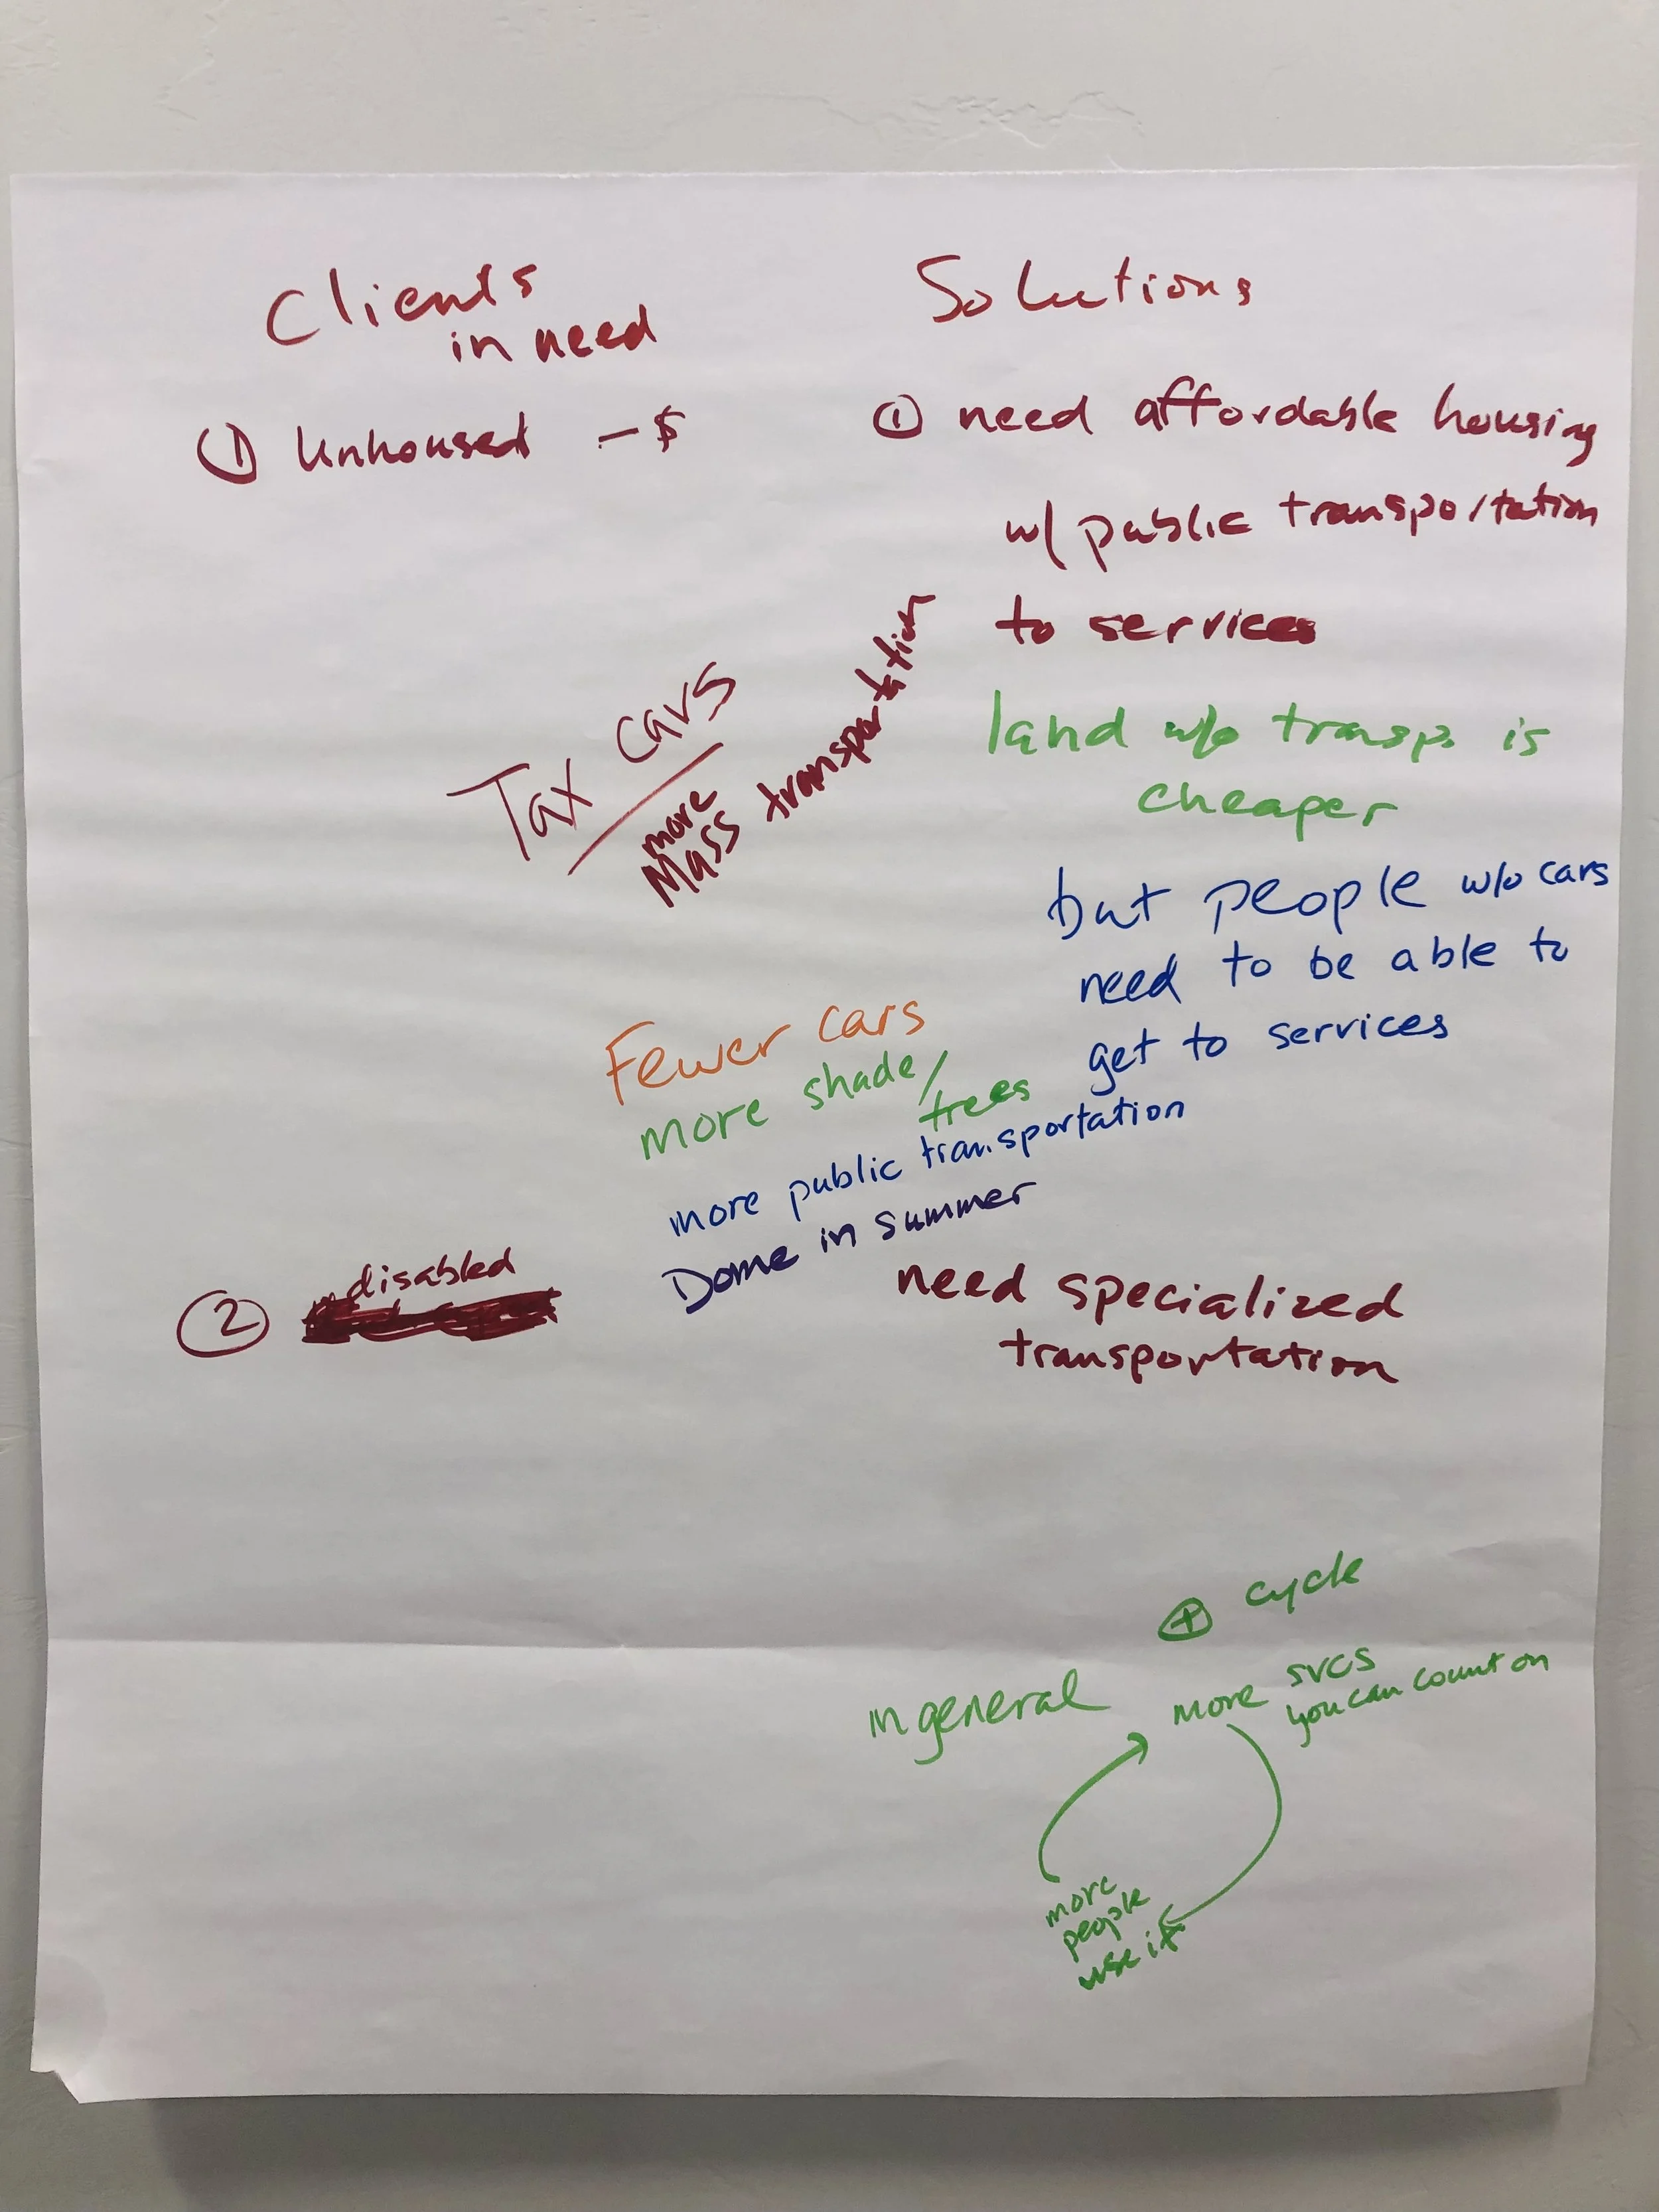 Clients
in need
① Unhoused - $
Solutions
① need affordable housing
w/ public transportation
to services
land w/o transp. is
cheaper
but people w/o cars
need to be able to
get to services
Tax cars
more
Mass transportation
Fewer cars
more shade/
trees
more public transportation
Dome in summer
② disabled
need specialized
transportation
in general
⊕ cycle
more svcs
you can count on
more
people
use it